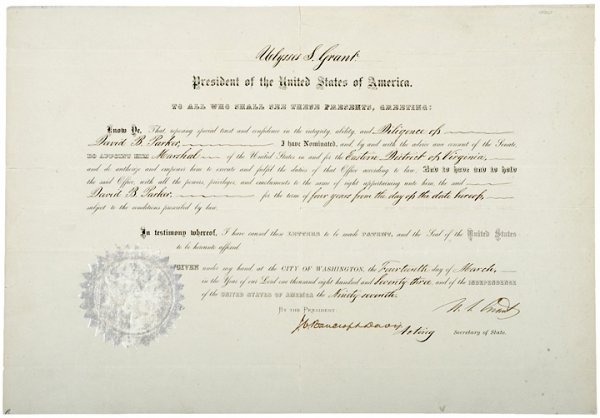 Ulysses S. Grant
President of the United States of America.
TO ALL WHO SHALL SEE THESE PRESENTS, GREETING:
Know Ye, That reposing special trust and confidence in the integrity, ability, and Diligence of
David B. Parker, I have Nominated, and by and with the advice and consent of the Senate,
DO APPOINT HIM Marshal of the United States in and for the Eastern District of Virginia,
and do authorize and empower him to execute and fulfil the duties of that Office according to law: And to have and to hold
the said Office, with all the powers, privileges, and emoluments to the same of right appertaining unto him, the said
David B. Parker, for the term of four years from the day of the date hereof,
subject to the conditions prescribed by law.
In testimony whereof, I have caused these LETTERS to be made PATENT, and the Seal of the United States
to be hereunto affixed.
GIVEN under my hand at the CITY OF WASHINGTON, the Fourteenth day of March,
in the Year of our Lord one thousand eight hundred and Seventy three, and of the INDEPENDENCE
of the UNITED STATES OF AMERICA the Ninety seventh.
BY THE PRESIDENT
U. S. Grant
J. C. Bancroft Davis Acting Secretary of State.